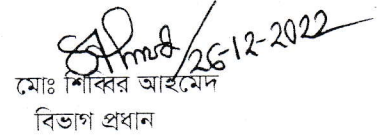 26-12-2022
মোঃ শিব্বির আহমেদ
বিভাগ প্রধান